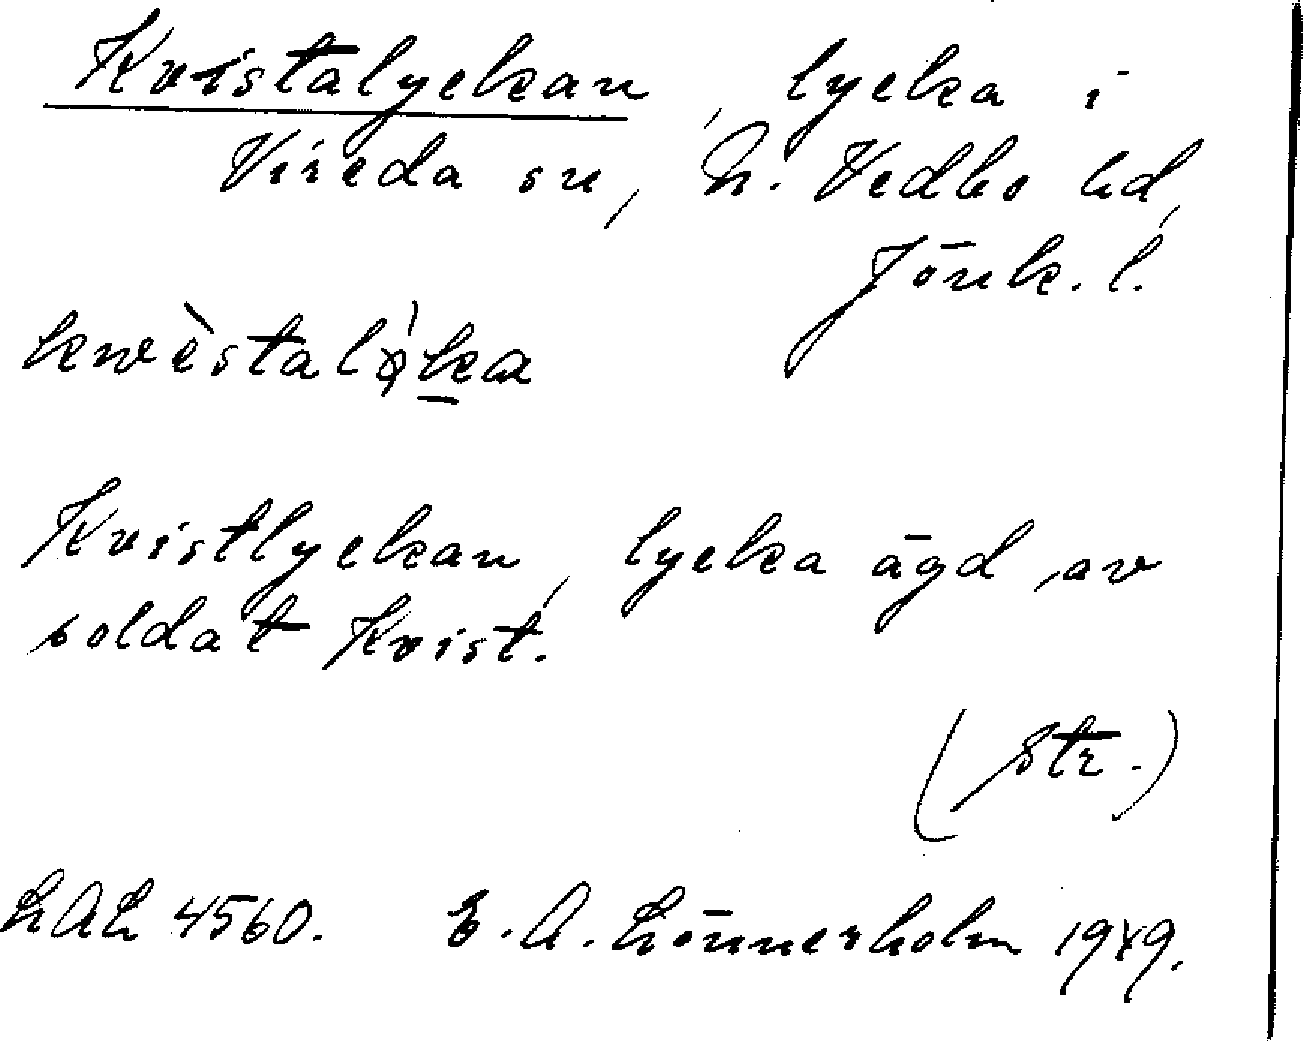 Kvistalyckan, lycka i
Vireda sn, N. Vedbo hd,
Jönk. l.
kwèstalø̀ka
Kvistlyckan, lycka ägd av
soldat Kvist.
(Str.)
LAL 4560. E. A. Lönnerholm 1949.